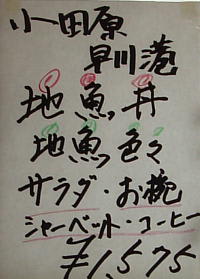 小田原
早川港
地魚丼
地魚色々
サラダ・お椀
シャーベット・コーヒー
¥1,575